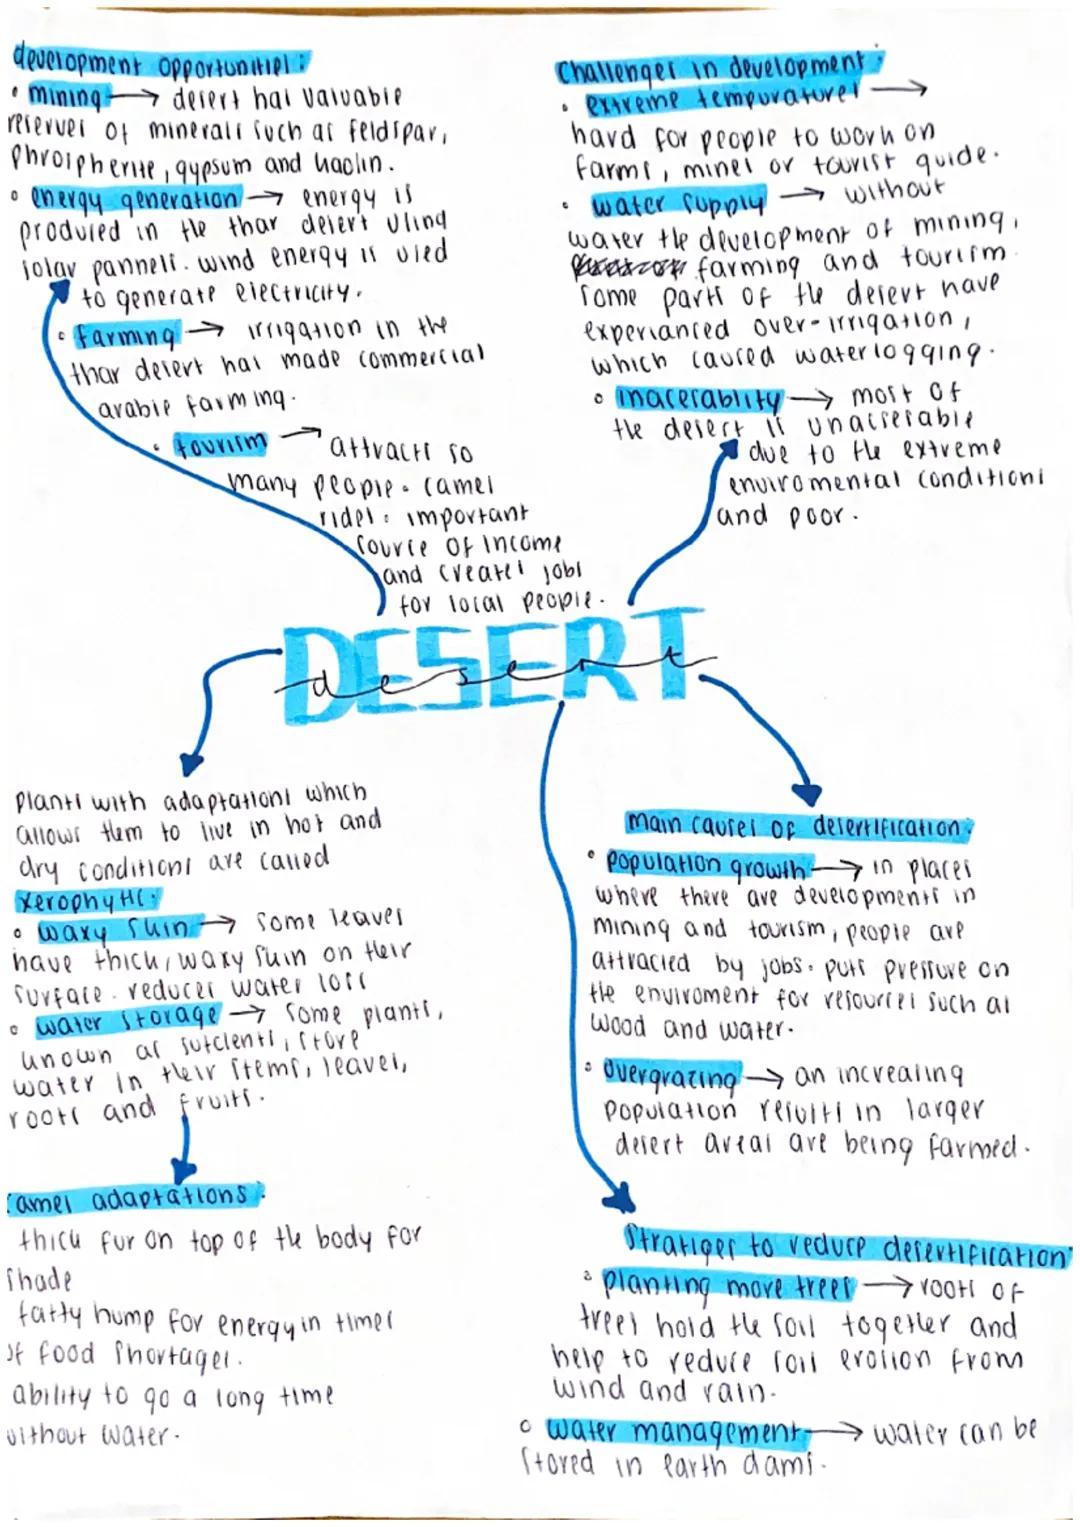 development opportunities:
• mining → desert has valuable
reserves of minerals such as feldspar,
phrospherite, gypsum and kaolin.
• energy generation → energy is
produced in the thar desert using
solar pannels. wind energy is used
to generate electricity.
• farming → irrigation in the
thar desert has made commercial
arable farming.
• tourism →
attracts so
many people. camel
rides. important
source of income
and creates jobs
for local people.
Challenges in development:
• extreme tempuratures →
hard for people to work on
farms, mines or tourist guide.
• water supply → without
water the development of mining,
farming and tourism.
Some parts of the desert have
experianced over-irrigation,
which caused waterlogging.
• inacesablity → most of
the desert is unaccesable
due to the extreme
enviromental conditions
and poor.
DESERT
desert
plants with adaptations which
allows them to live in hot and
dry conditions are called
xerophytic:
• waxy skin → some leaves
have thick, waxy skin on their
surface. reduces water loss
• water storage → some plants,
known as sutclents, store
water in their stems, leaves,
roots and fruits.
camel adaptations:
thick fur on top of the body for
shade
fatty hump for energy in times
of food shortages.
ability to go a long time
without water.
main causes of desertification:
• population growth → in places
where there are developments in
mining and tourism, people are
attracted by jobs. puts pressure on
the enviroment for resources such as
wood and water.
• overgrazing → an increasing
population results in larger
desert areas are being farmed.
Stratiges to reduce desertification
• planting more trees → roots of
trees hold the soil together and
help to reduce soil erosion from
wind and rain.
• water management → water can be
stored in earth dams.